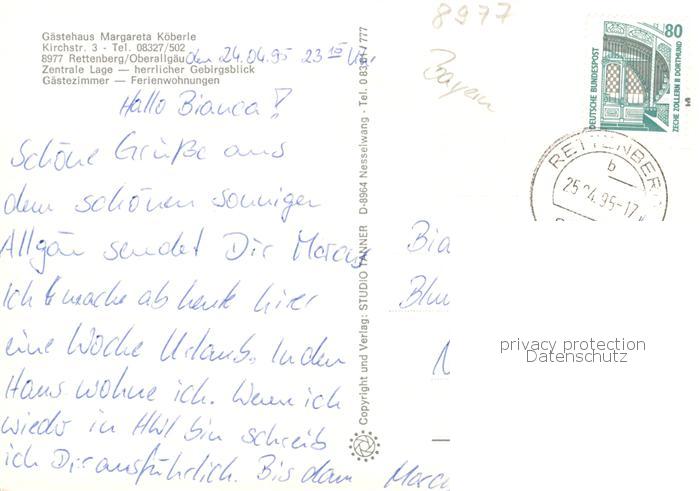 Gästehaus Margareta Köberle
Kirchstr. 3 - Tel. 08327/502
8977 Rettenberg/Oberallgäu
Zentrale Lage — herrlicher Gebirgsblick
Gästezimmer — Ferienwohnungen
den 24.04.95 23 15 Uhr
Hallo Bianca!
Schöne Grüße aus
dem schönen sonnigen
Allgäu sendet Dir Marcus
Ich mache ab heute hier
eine Woche Urlaub. In dem
Haus wohne ich. Wenn ich
wieder in HWI bin schreib
ich Dir ausführlich. Bis dann Marcu
Copyright und Verlag: STUDIO TANNER D-8964 Nesselwang - Tel. 0 83 61 / 777
8977
Bayern
80
DEUTSCHE BUNDESPOST
ZECHE ZOLLERN II DORTMUND
RETTENBERG
b
25.04.95-17
Bia
Blu
privacy protection
Datenschutz